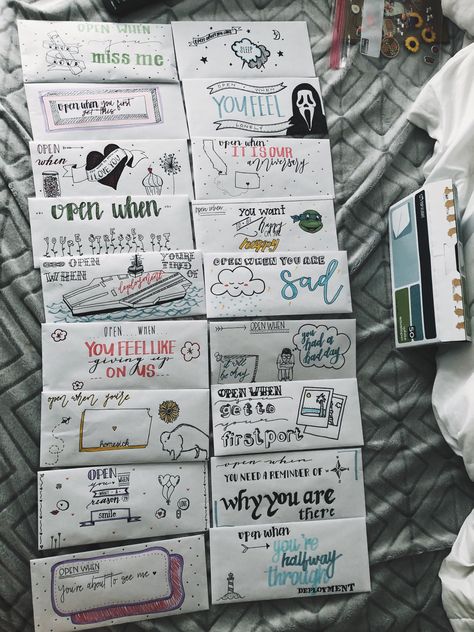 OPEN WHEN
you
miss me
open when you can't
SLEEP
open when you first
get this
OPEN WHEN
YOU FEEL
LONELY
OPEN
when
I LOVE YOU
OPEN WHEN
IT IS OUR
anniversary
OPEN WHEN
OPEN WHEN
You want
to be
happy
OPEN
WHEN
YOU'RE
TIRED
OF
deployment
OPEN WHEN YOU ARE
sad
OPEN WHEN
YOU FEEL LIKE
giving up
ON US
OPEN WHEN
it will
be okay
you
had a
bad day
open when you're
homesick
OPEN WHEN
get to
first port
OPEN
YOU
WHEN
WHAT A
reason
smile
open when
YOU NEED A REMINDER OF
why you are
there
OPEN WHEN
You're about to see me
open when
you're
halfway
through
DEPLOYMENT
50